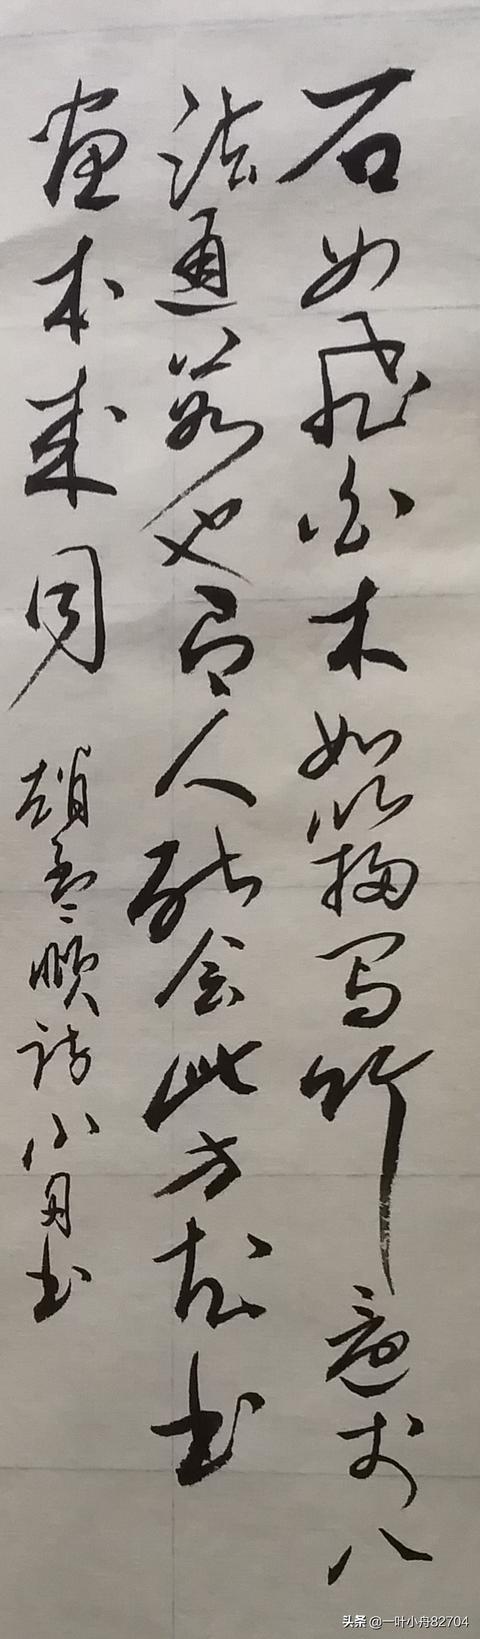 石如飛白木如籀写竹還於八
法通若也人能会此方知书
画本来同
趙孟頫诗小舟书
头条 @一叶小舟82704